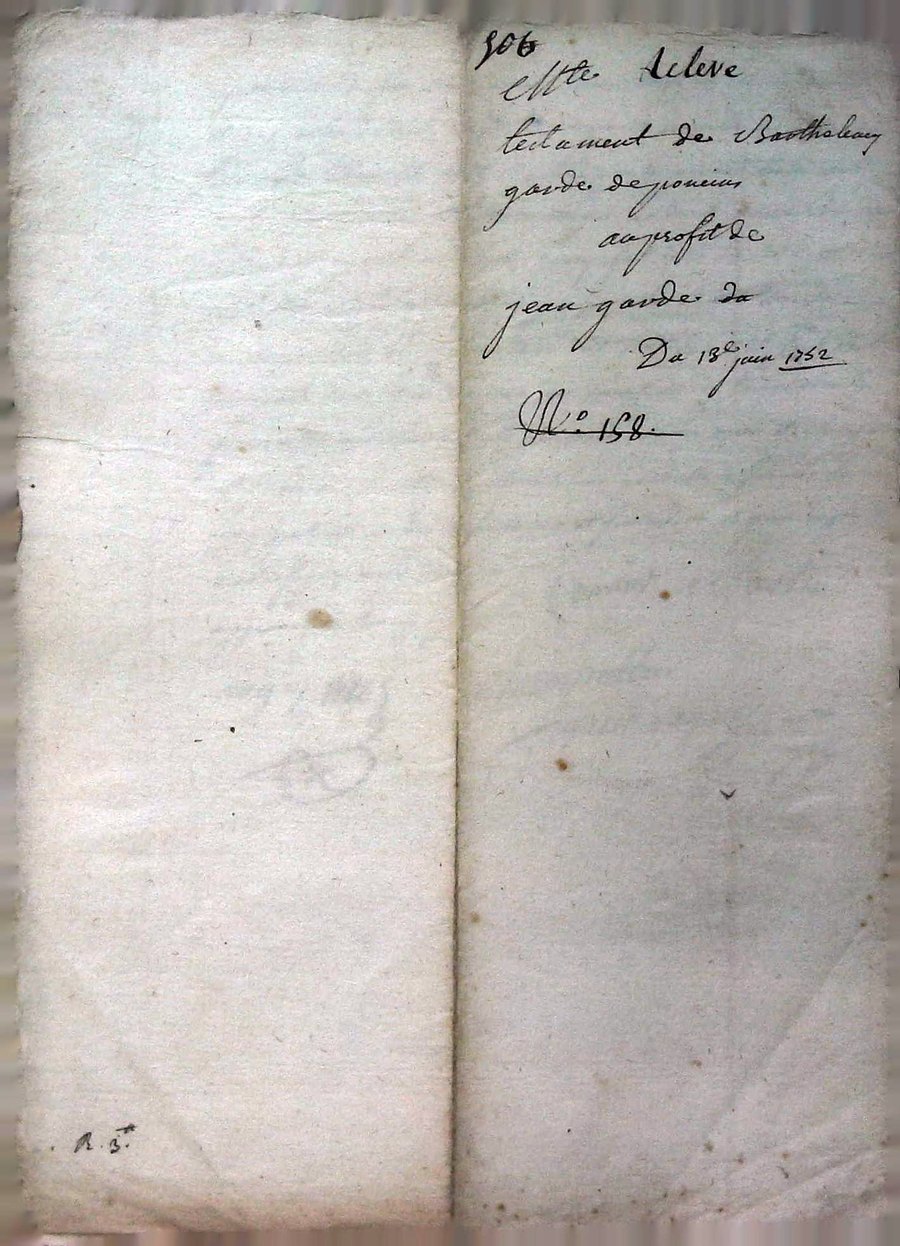 506
Mtte Acleve
testament de Barthelemy
garde de poncins
au profit de
jean garde du
Du 13e juin 1752
No. 158.
R. 3tt